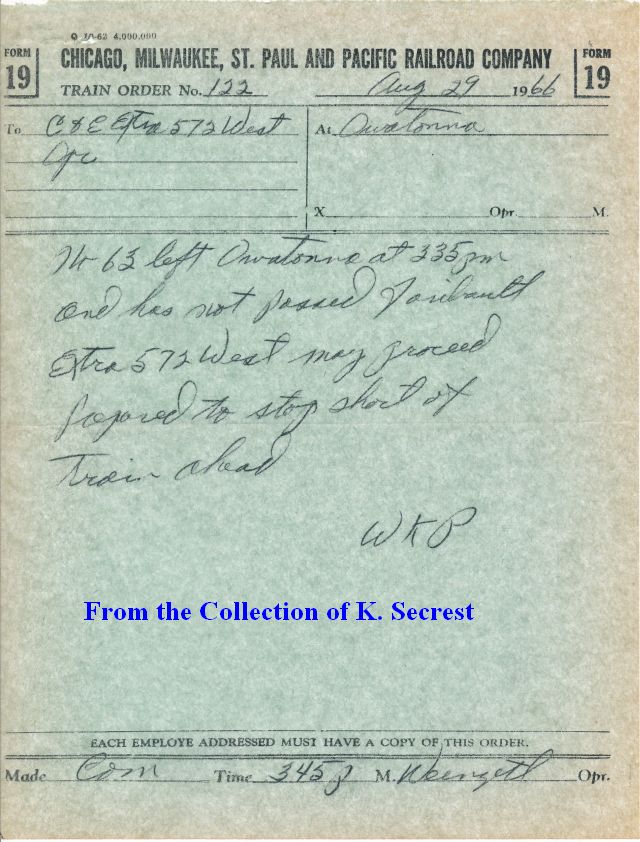 10-62 4,000,000
FORM 19
CHICAGO, MILWAUKEE, ST. PAUL AND PACIFIC RAILROAD COMPANY
FORM 19
TRAIN ORDER No. 122 Aug 29 1966
To C & E Extra 572 West At Owatonna
Opr
X Opr. M.
No 63 left Owatonna at 335 pm
and has not passed Faribault
Extra 572 West may proceed
prepared to stop short of
train ahead
WKP
From the Collection of K. Secrest
EACH EMPLOYE ADDRESSED MUST HAVE A COPY OF THIS ORDER.
Made Com Time 345 p M. Opr.